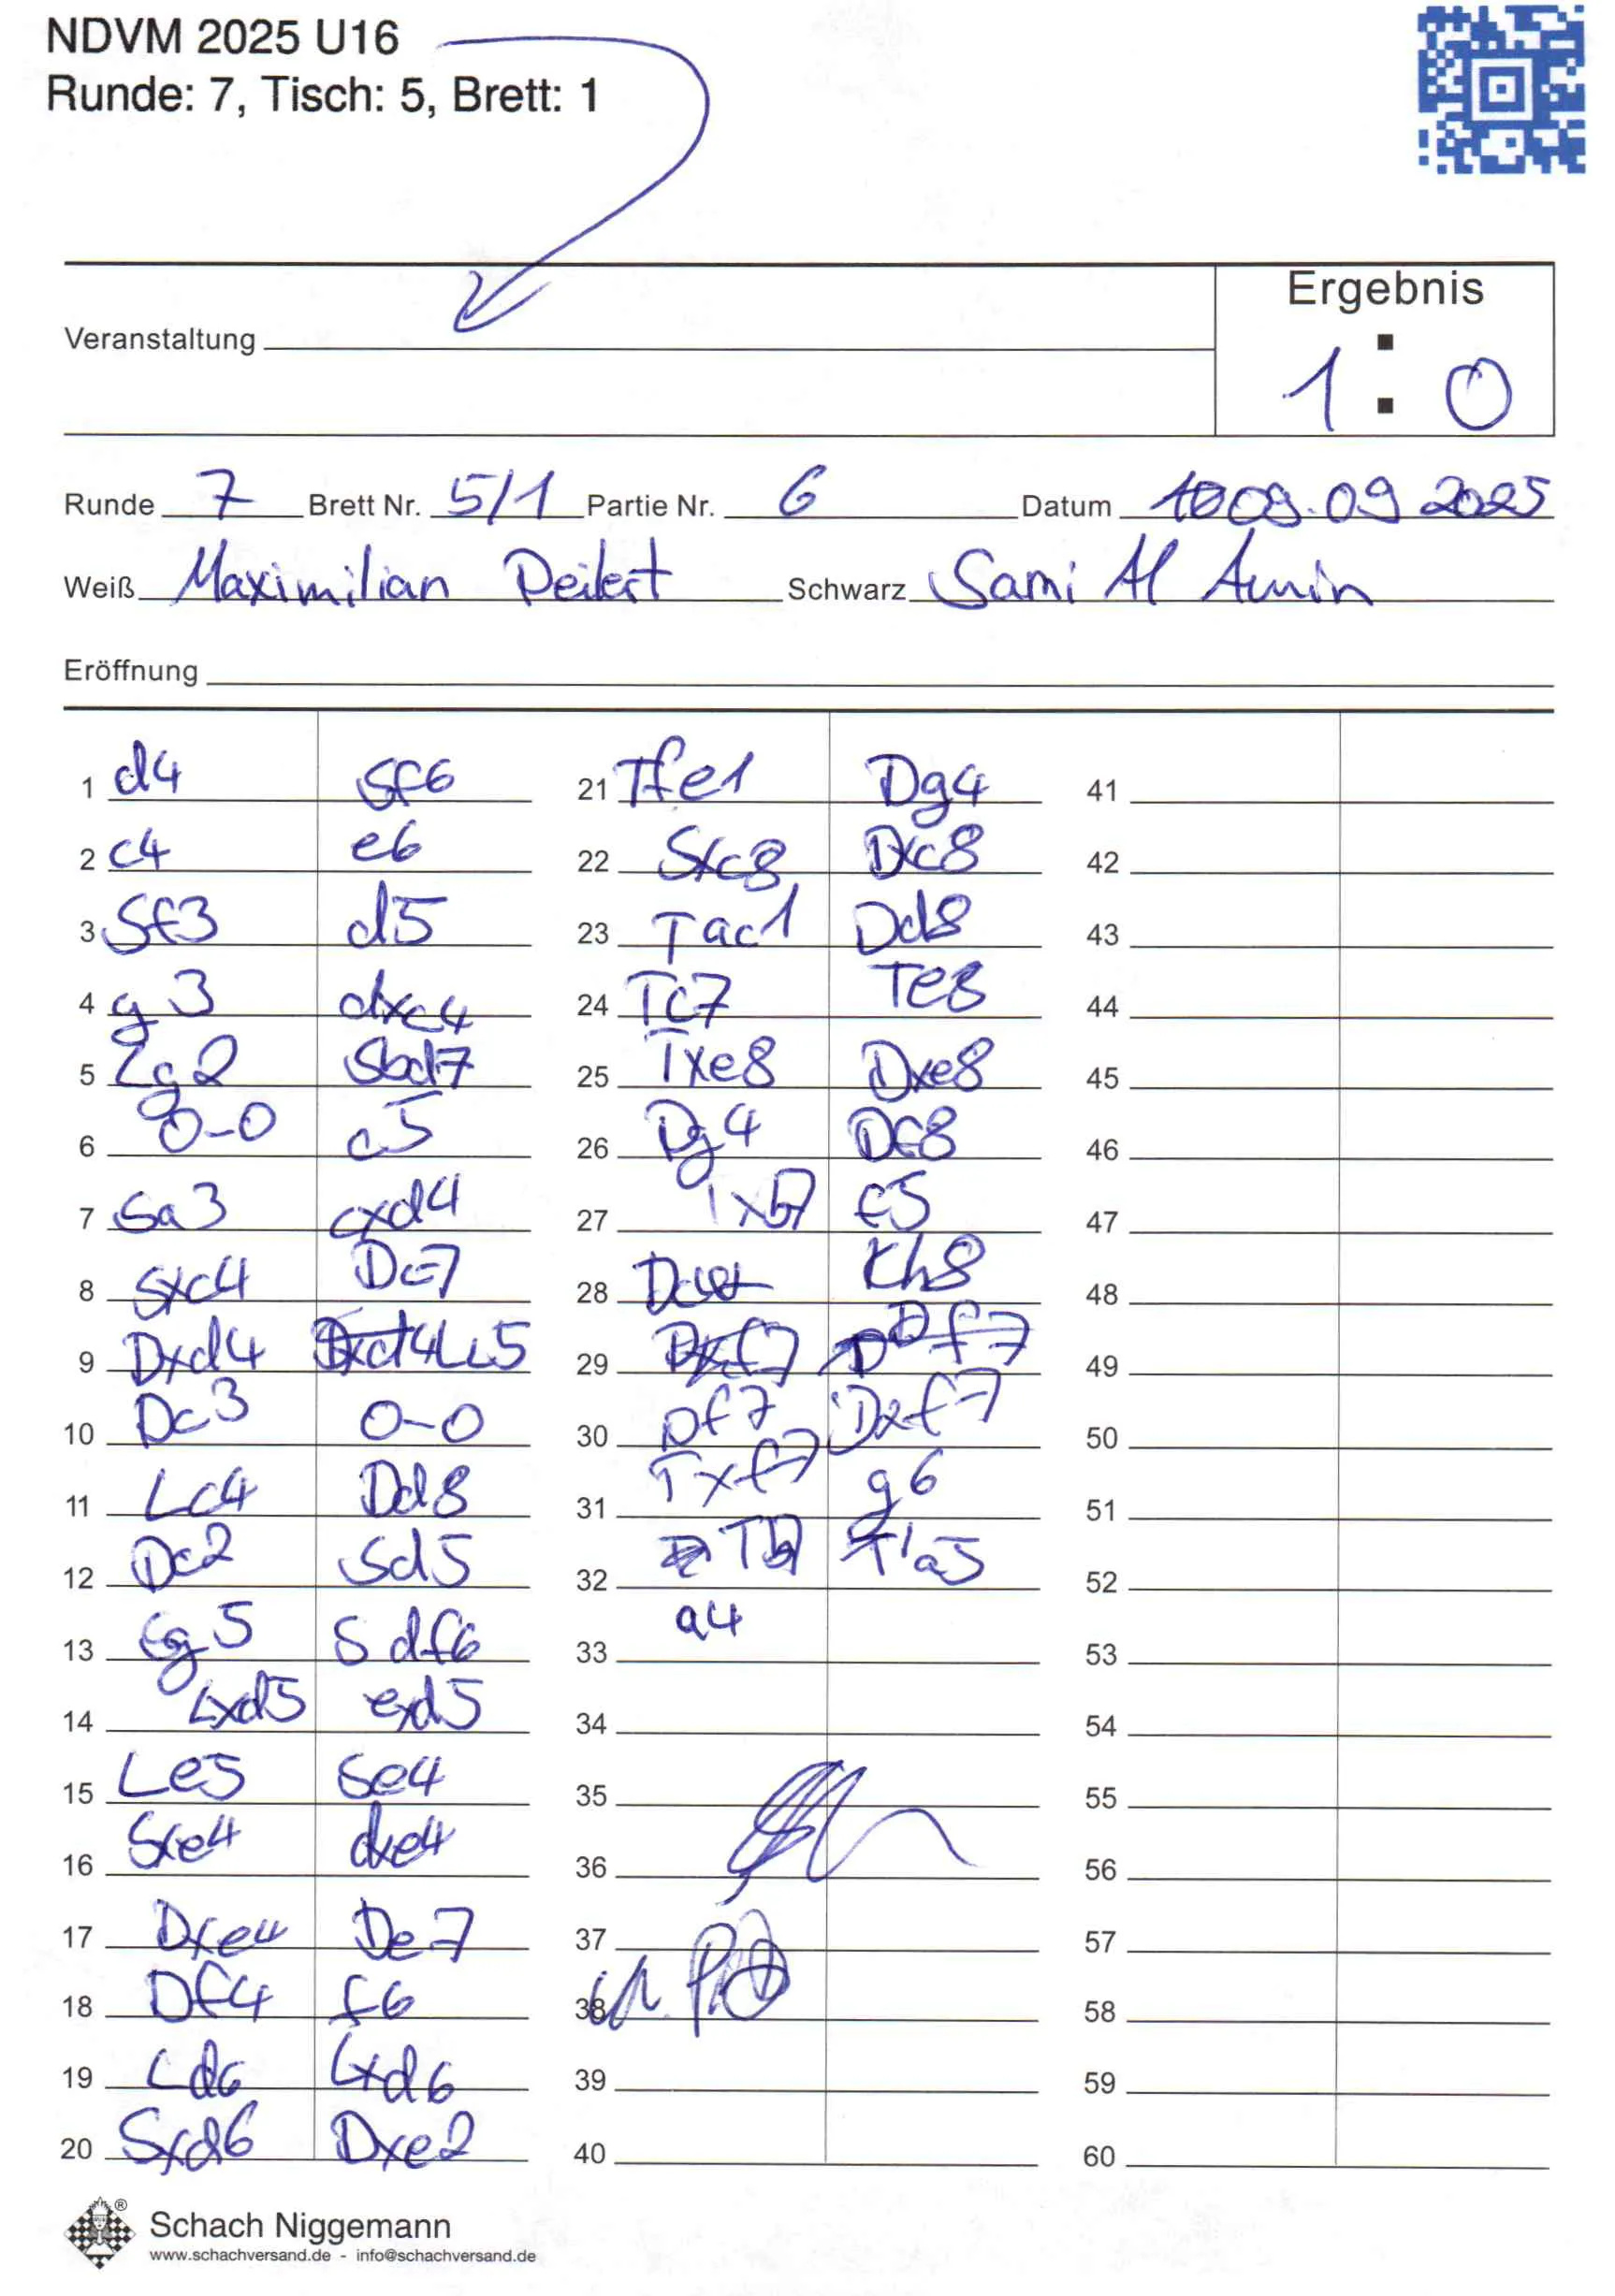 NDVM 2025 U16
Runde: 7, Tisch: 5, Brett: 1
Ergebnis
Veranstaltung
1 : 0
Runde 7 Brett Nr. 5/1 Partie Nr. 6 Datum 09.09 2025
Weiß Maximilian Schwarz Sami Al Amin
Eröffnung
1 d4 Sf6 21 Tfe1 Dg4 41
2 c4 e6 22 Sxc8 Dxc8 42
3 Sf3 d5 23 Tac1 Dd8 43
4 g3 dxc4 24 Tc7 Te8 44
5 Lg2 Sbd7 25 Txe8 Dxe8 45
6 0-0 c5 26 Dg4 Df8 46
7 Sa3 cxd4 27 Txb7 f5 47
8 Sxc4 Dc7 28 Kh8 48
9 Dxd4 Lc5 29 Dxf7 Df7 49
10 Dc3 0-0 30 Df7 Dxf7 50
11 Lc4 Dd8 31 Txf7 g6 51
12 Dc2 Sd5 32 Tb7 a5 52
13 Sg5 Sdf6 33 a4 53
14 Lxd5 exd5 34 54
15 Le5 Se4 35 55
16 Sxe4 dxe4 36 56
17 Dxe4 De7 37 57
18 Df4 f6 38 58
19 Ld6 Lxd6 39 59
20 Sxd6 Dxe2 40 60
Schach Niggemann
www.schachversand.de - info@schachversand.de